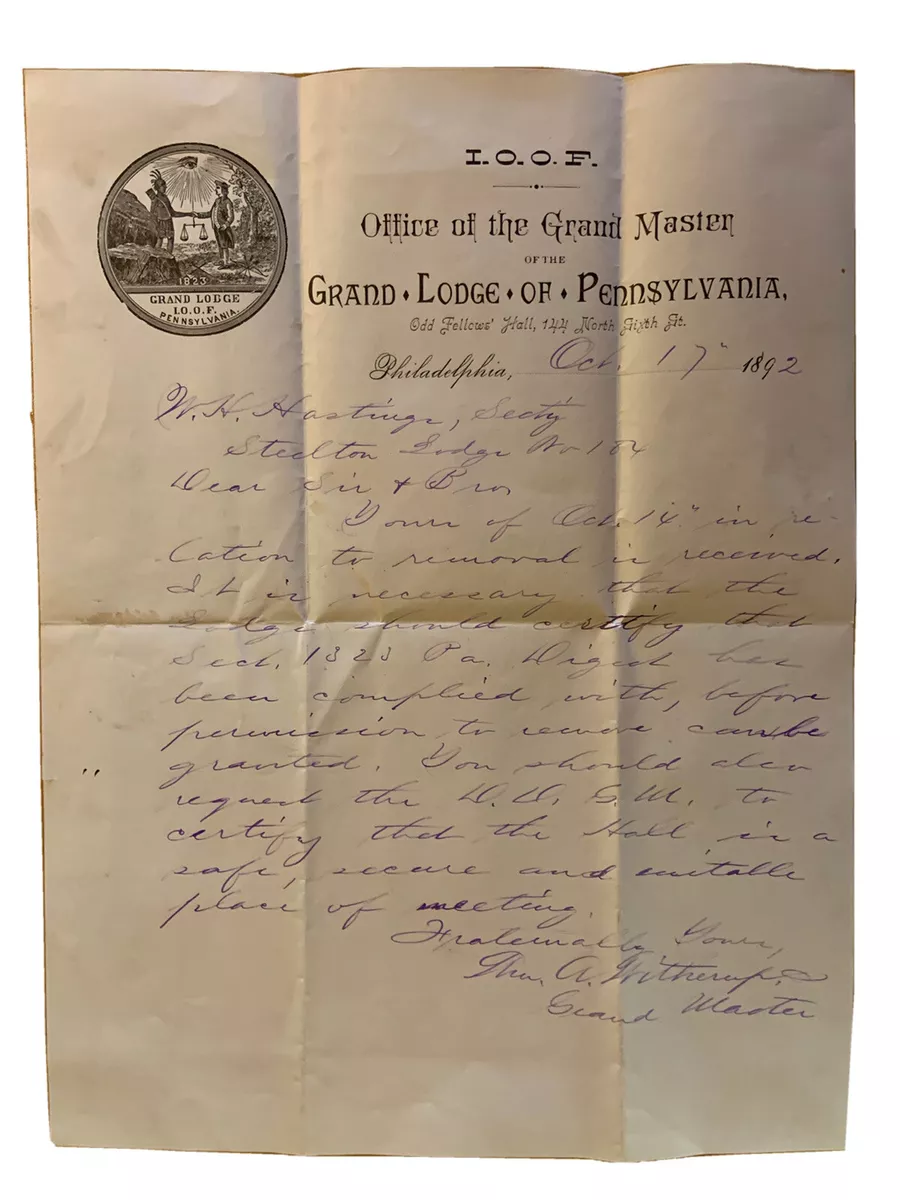 I.O.O.F.
Office of the Grand Master
OF THE
GRAND LODGE OF PENNSYLVANIA,
Odd Fellows' Hall, 144 North Sixth St.
1823
GRAND LODGE
I.O.O.F.
PENNSYLVANIA.
Philadelphia, Oct. 17" 1892
W. H. Hastings, Sect'y
Steelton Lodge No 184
Dear Sir & Bro,
Yours of Oct. 14" in re-
lation to removal is received.
It is necessary that the
Lodge should certify that
Sect. 1323 Pa. Digest has
been complied with, before
permission to remove can be
granted. You should also
request the D. D. G. M. to
certify that the Hall is a
safe, secure and suitable
place of meeting.
Fraternally Yours,
Thos. A. Witherup.
Grand Master